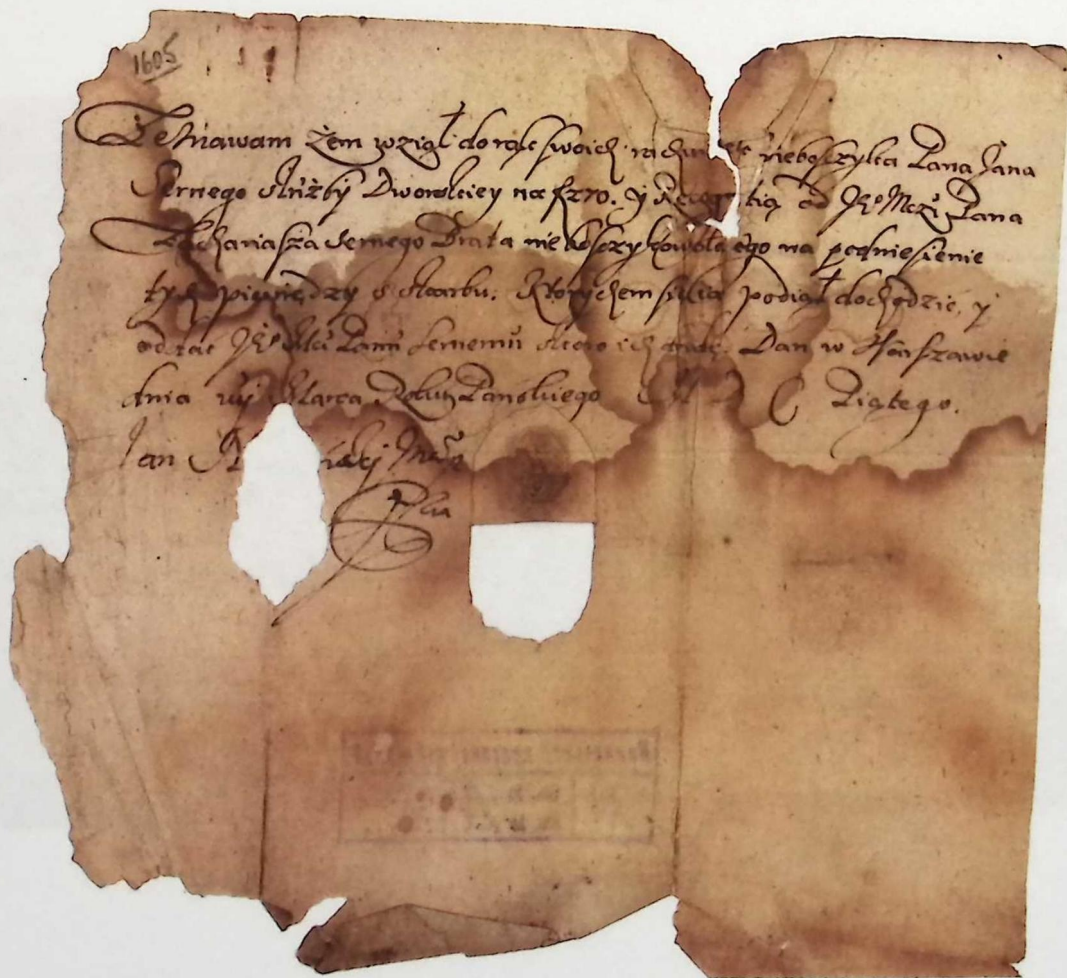 1605
Zeznawam żem wziął do rąk swoich nieboszyka Pana Jana
Sernego służby Dworskiey na f 270. y od Je° Mczi Pana
Zachariasza Sernego Brata nieboszykowskiego na podniesienie
tych pieniędzy s skarbu. Ktorychem się podiął dochodzić, y
oddac Je° Mci Panu Sernemu skoro ich Dan w Warszawie
dnia vij Marca Roku Pańskiego M D C Piątego.
Jan